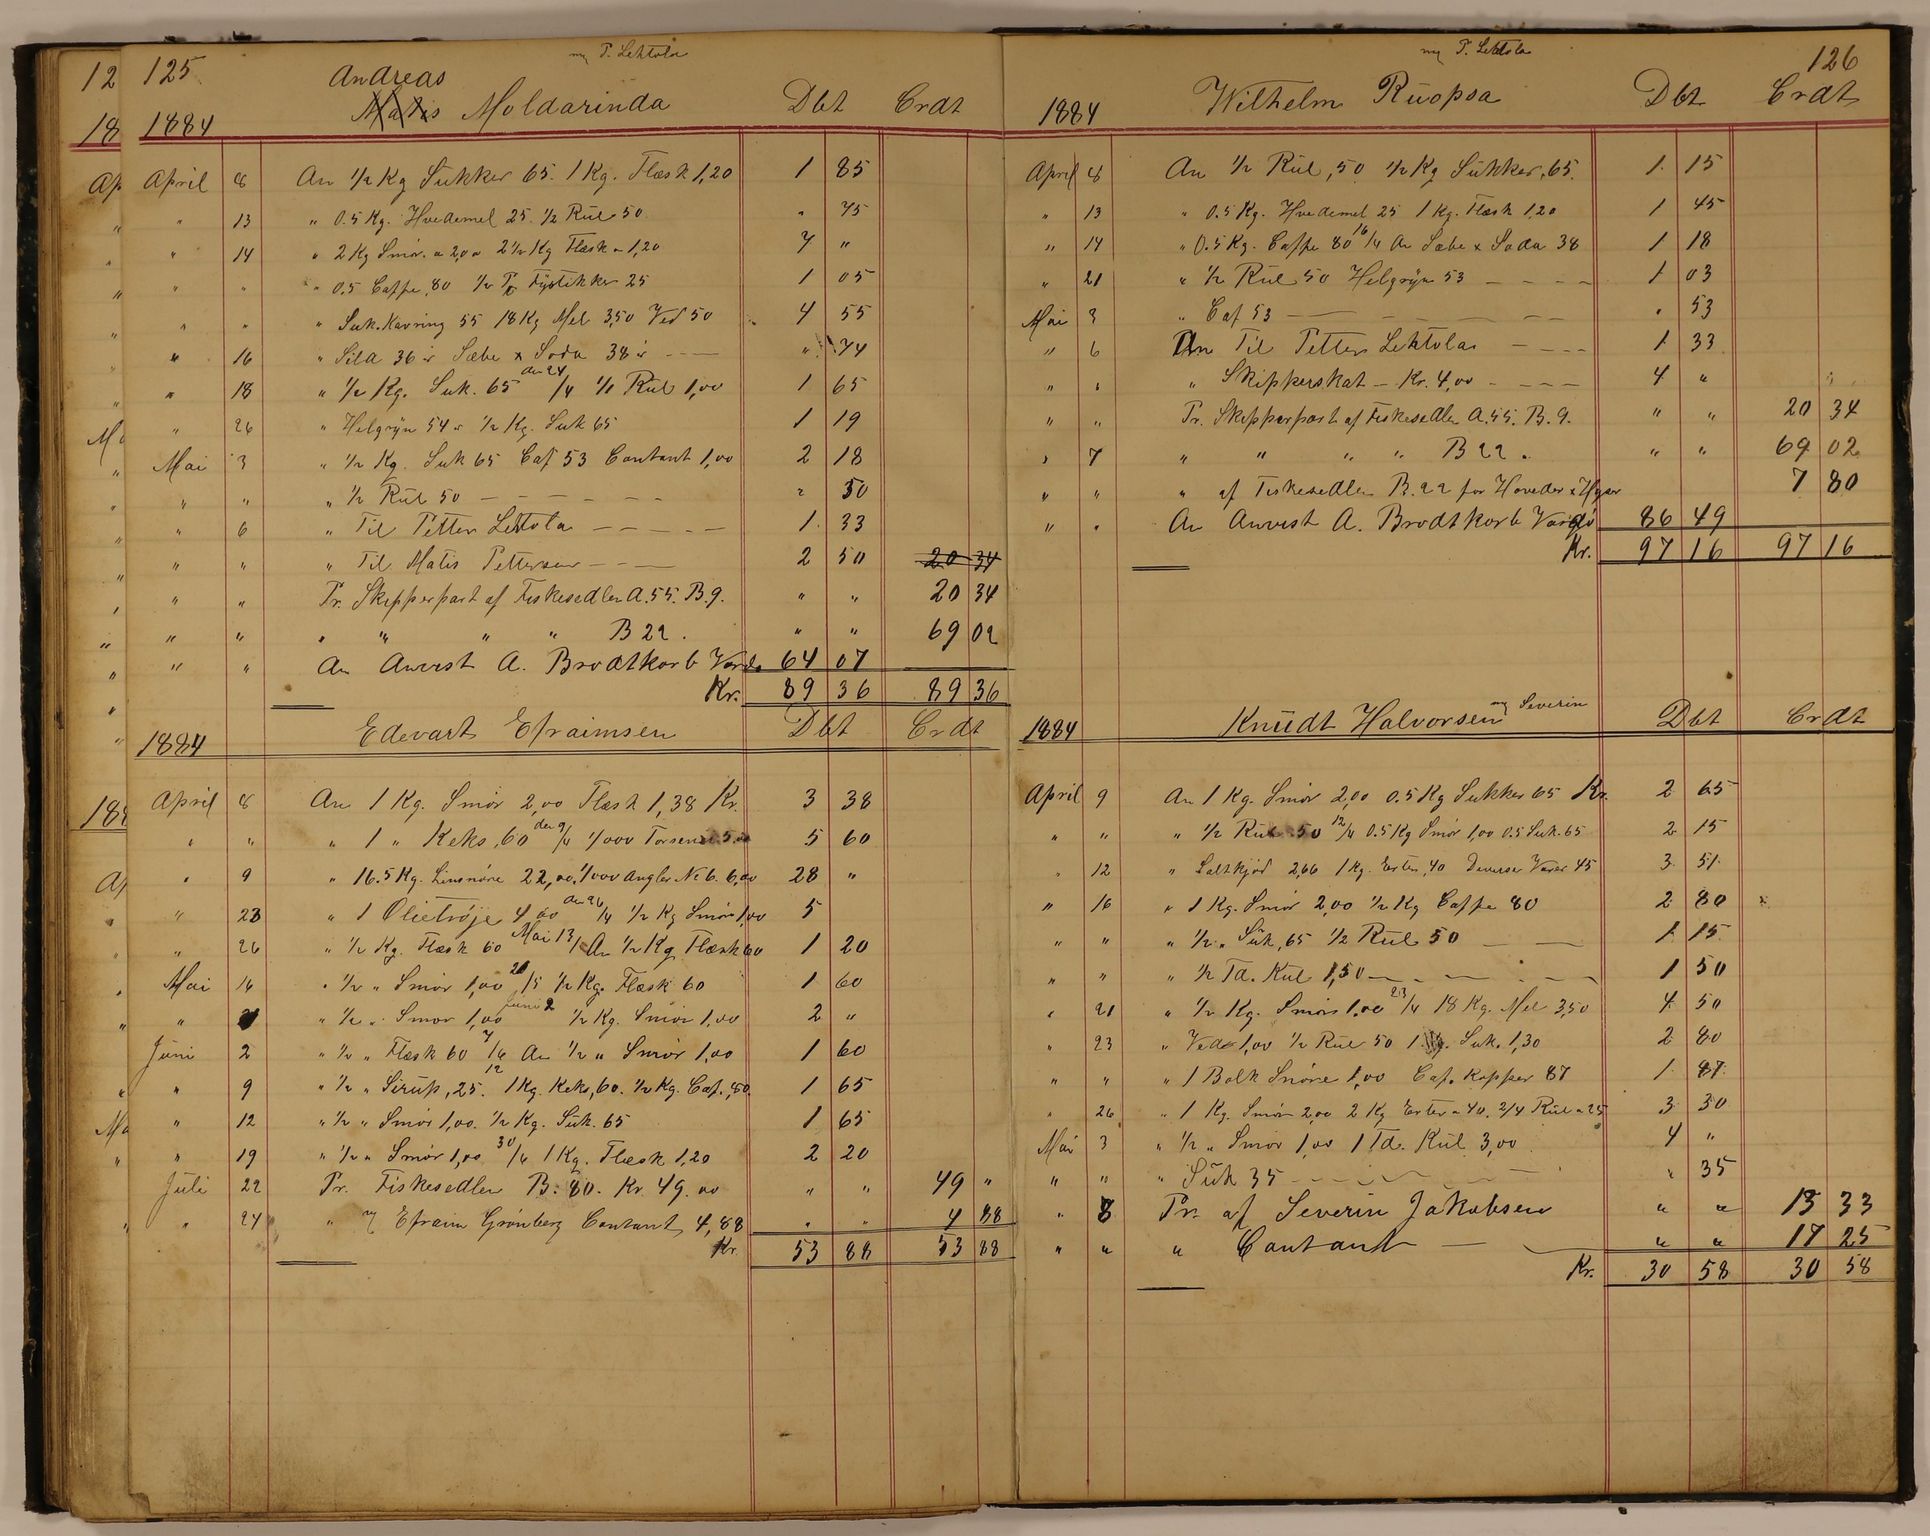 125
m/ P. Lehtola
Andreas
Matis Moldarinda Dbt Crdt
1884
April 8 An 1/2 Kg Sukker 65. 1 Kg. Flæsk 1,20 1 85
" 13 " 0.5 Kg. Hvedemel 25. 1/2 Rul 50 " 75
" 14 " 2 Kg Smør. a 2,00 2 1/2 Kg Flæsk a 1,20 7 "
" " " 0.5 Caffe ,80 1/2 Pk Fyrstikker 25 1 05
" " " Suk.Kavring 55 18 Kg Mel 3,50 Ved 50 4 55
" 16 " Sild 36 ør Sæbe & Soda 38 ør " 74
" 18 " 1/2 Kg. Suk. 65 den 24/4 1/1 Rul 1,00 1 65
" 26 " Helgryn 54 ør 1/2 Kg. Suk 65 1 19
Mai 3 " 1/2 Kg. Suk 65 Caf 53 Contant 1,00 2 18
" " " 1/2 Rul 50 " 50
" 6 " Til Petter Lehtola 1. 33
" " " Til Matis Pettersen 2 50 20 34
" " Pr. Skipperpart af Fiskesedlen A.55. B.9. " " 20 34
" " " " " " B 22. " " 69 02
" " An Anvist A. Brodtkorb Vardø 64 07
Kr. 89 36 89 36
1884 Edevart Efraimsen Dbt Crdt
April 8 An 1 Kg. Smør 2,00 Flæsk 1,38 Kr. 3 38
" " " 1 " Keks ,60 den 9/4 1/000 Torsene 5,00 5 60
" 9 " 16.5 Kg. Linsnøre 22,00. 1/000 Angler No 6. 6,00 28 "
" 23 " 1 Olietrøje 4,00 den 26/4 1/2 Kg Smør 1,00 5
" 26 " 1/2 Kg. Flæsk 60 Mai 13/ An 1/2 Kg Flæsk 60 1 20
Mai 16 " 1/2 " Smør 1,00 20/5 1/2 Kg. Flæsk 60 1 60
" " 1/2 " Smør 1,00 Juni 2 1/2 Kg. Smør 1,00 2 "
Juni 2 " 1/2 " Flæsk 60 7/6 An 1/2 " Smør 1,00 1 60
" 9 " 1/2 " Sirup, 25. 12 1 Kg. Keks, 60. 1/2 Kg. Caf. ,80. 1 65
" 12 " 1/2 " Smør 1,00. 1/2 Kg. Suk. 65 1 65
" 19 " 1/2 " Smør 1,00 30/6 1 Kg. Flæsk 1,20 2 20
Juli 22 Pr. Fiskesedlen B. 80. Kr. 49.00 " " 49 "
" 24 " m/ Efraim Grønberg Contant 4,88 " " 4 88
Kr. 53 88 53 88
126
m/ P. Lehtola
1884 Wilhelm Ruopsa Dbt Crdt
April 8 An 1/2 Rul ,50 1/2 Kg Sukker ,65. 1. 15
" 13 " 0.5 Kg. Hvedemel 25 1 Kg. Flæsk 1,20 1 45
" 14 " 0.5 Kg. Caffe 80 16/4 An Sæbe & Soda 38 1 18
" 21 " 1/2 Rul 50 Helgryn 53 1 03
Mai 3 " Caf 53 " 53
" 6 An Til Petter Lehtola 1 33
" " " Skipperskat - Kr. 4,00 4 "
" " Pr. Skipperpart af Fiskesedlen A.55. B.9. " " 20 34
" 7 " " " " B 22. " " 69 02
" " " af Fiskesedlen B.22 for Hoveder & 7 80
" " An Anvist A. Brodtkorb Vardø 86 49
Kr. 97 16 97 16
1884 Knudt Halvorsen m/ Severin Dbt Crdt
April 9 An 1 Kg. Smør 2,00 0.5 Kg Sukker 65 Kr. 2 65
" " " 1/2 Rul 50 12/4 0.5 Kg Smør 1,00 0.5 Suk. 65 2 15
" 12 " Saltkjød 2,66 1 Kg. Erter ,40 Diverse Varer 45 3. 51.
" 16 " 1 Kg. Smør 2,00 1/2 Kg Caffe 80 2 80
" " " 1/2 " Suk, 65 1/2 Rul 50 1 15
" " " 1/2 Td. Kul 1,50 1 50
" 21 " 1/2 Kg. Smør 1.00 23/4 18 Kg. Mel 3,50 4 50
" 23 " Ved 1,00 1/2 Rul 50 1 Kg. Suk. 1,30 2 80
" " " 1 Bolk Snøre 1,00 Caf. Kopper 87 1. 87.
" 26 " 1 Kg. Smør 2,00 2 Kg Erter a 40. 2/4 Rul a 25 3 30
Mai 3 " 1/2 " Smør 1,00 1 Td. Kul 3,00 4 "
" " " Suk 35 " 35
" 8 Pr. af Severin Jakobsen " " 13 33
" " " Contant " " 17 25
Kr. 30 58 30 58